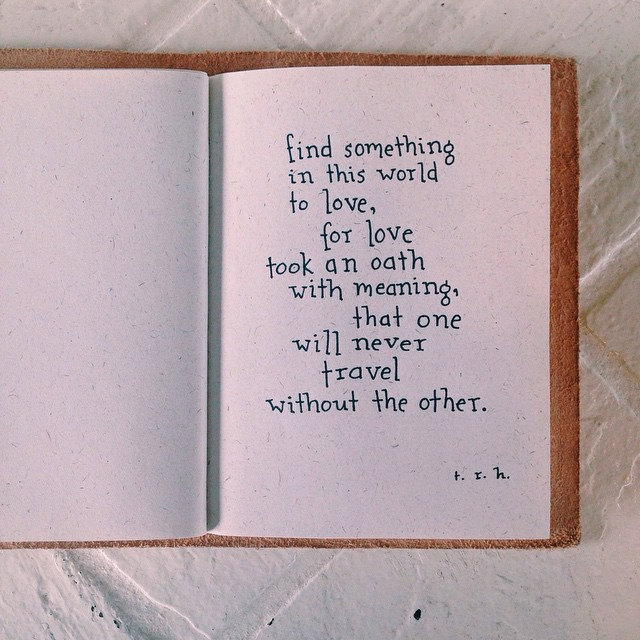 find something
in this world
to love,
for love
took an oath
with meaning,
that one
will never
travel
without the other.
t. r. h.